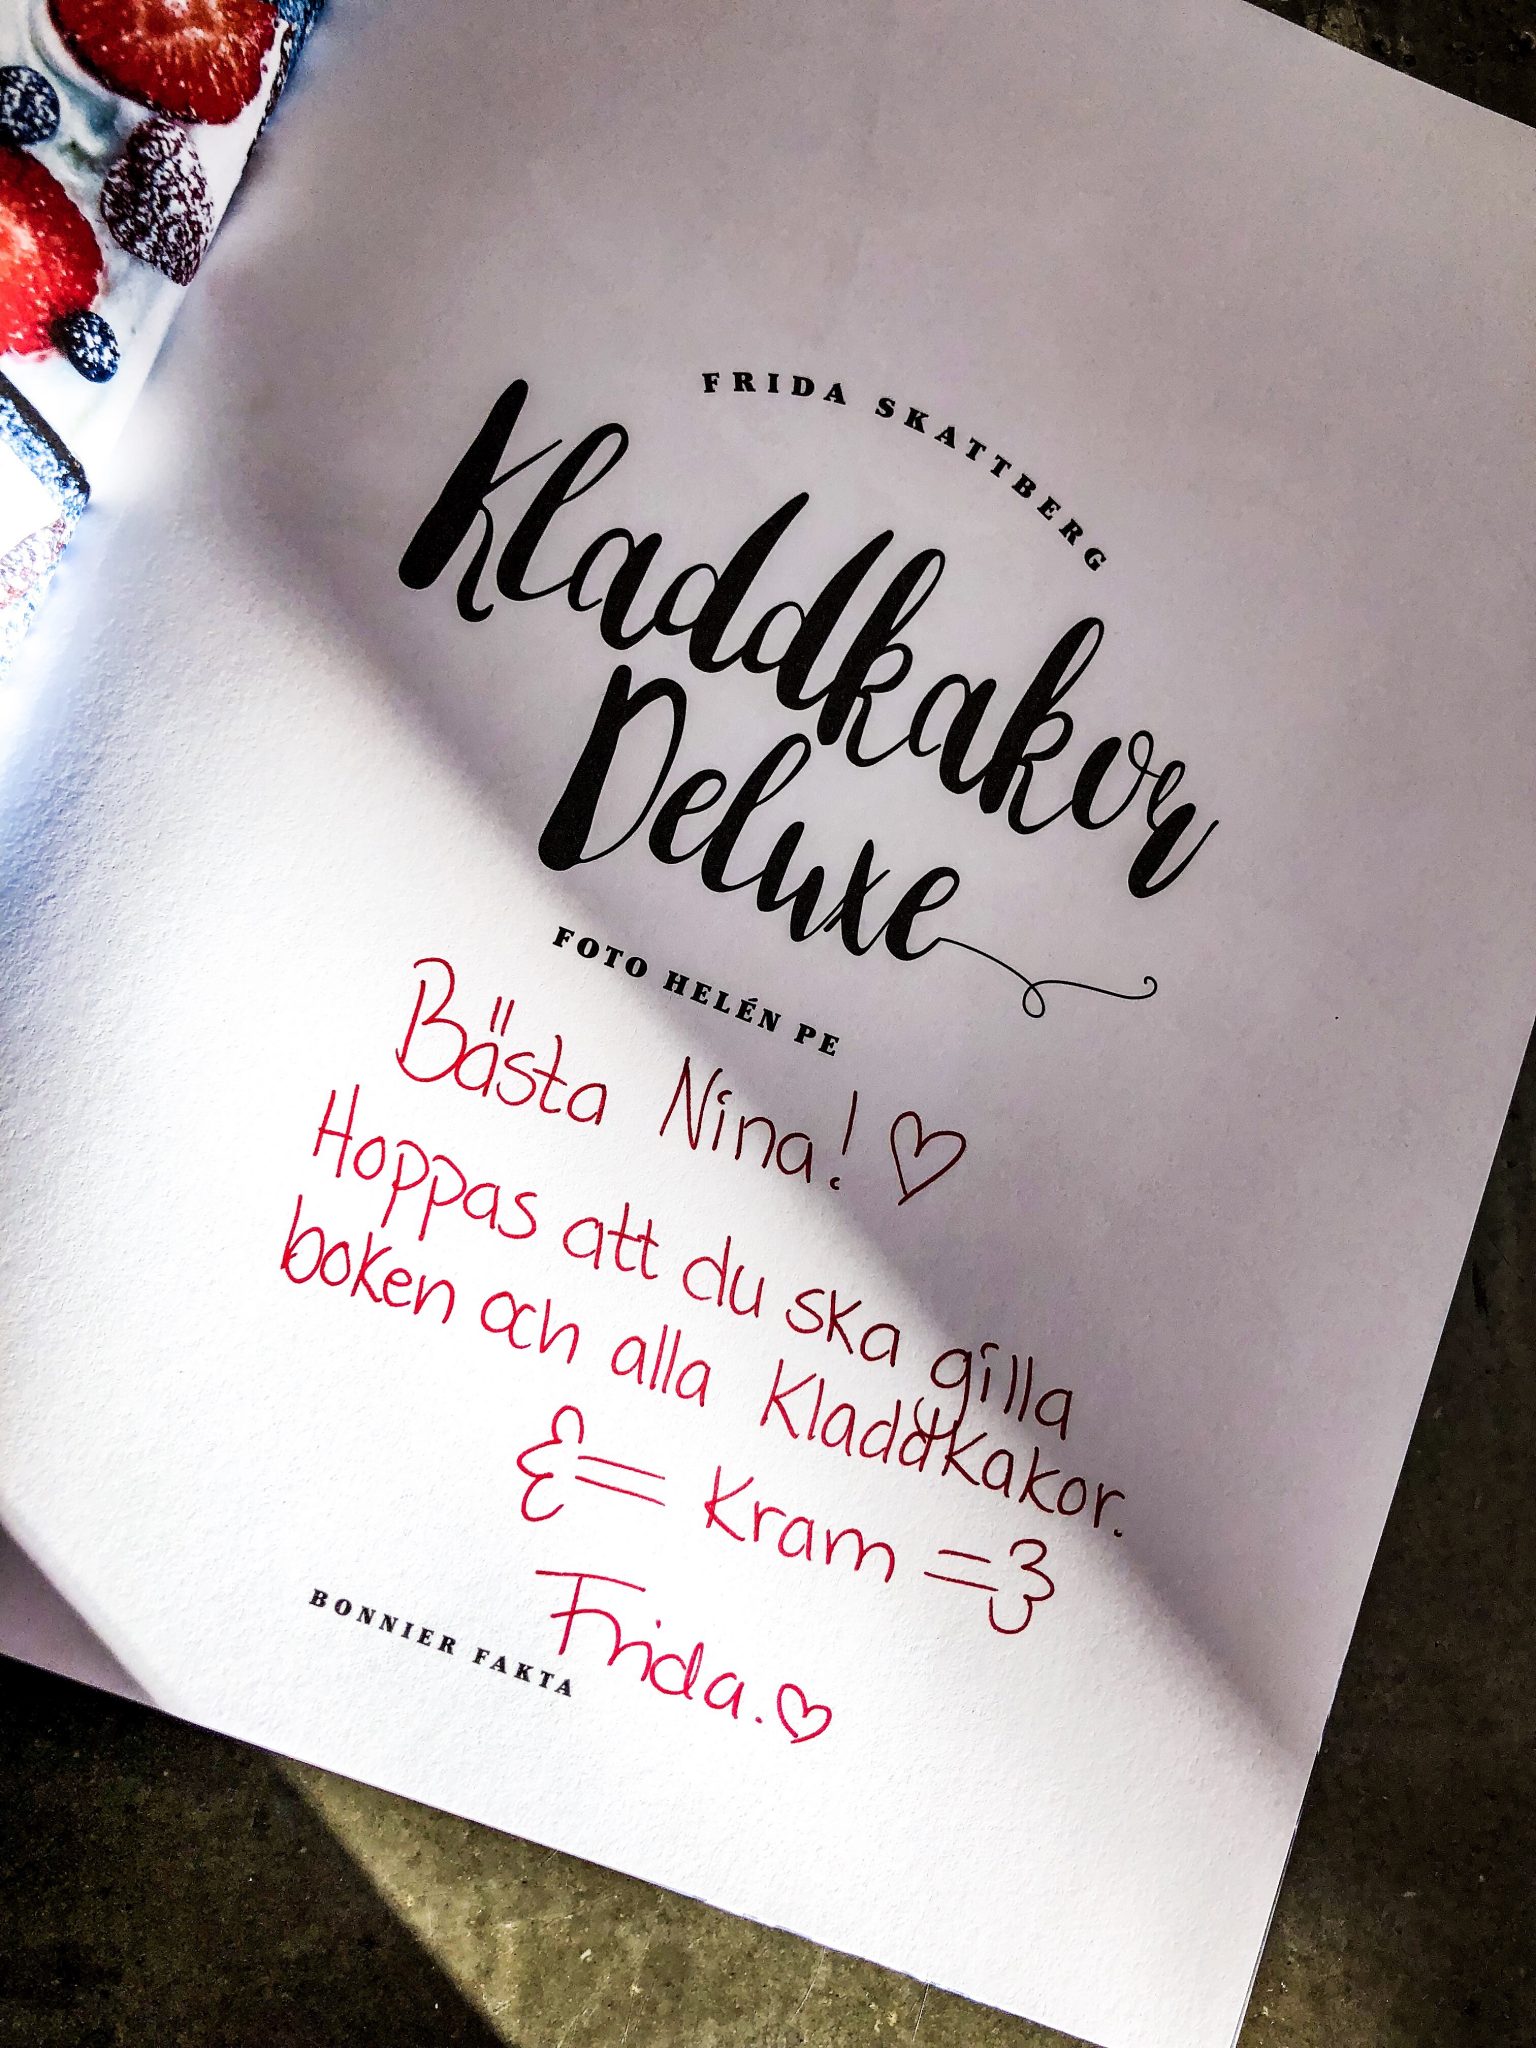 FRIDA SKATTBERG
Kladdkakor
Deluxe
FOTO HELÉN PE
Bästa Nina! ♡
Hoppas att du ska gilla
boken och alla Kladdkakor.
Ɛ= Kram =3
Frida. ♡
BONNIER FAKTA